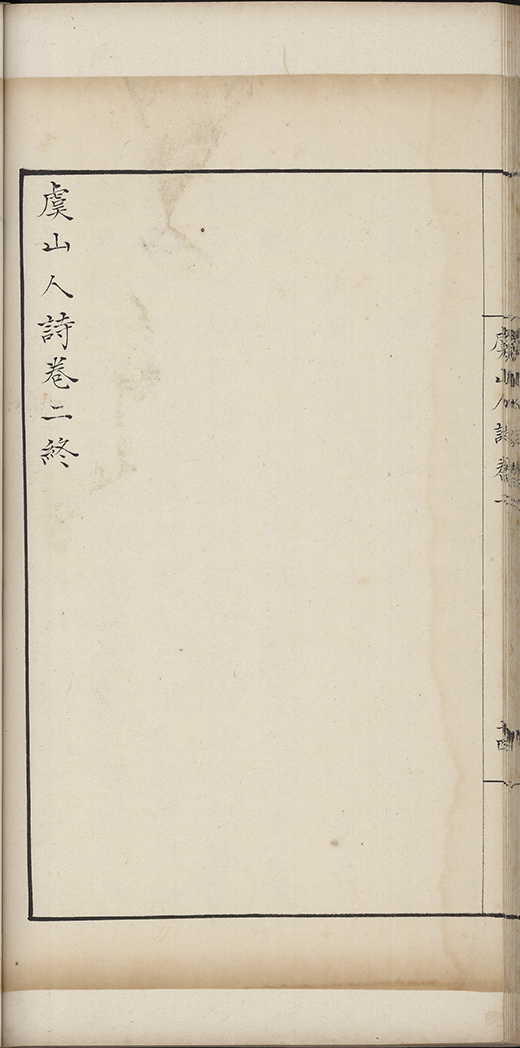 虞山人詩卷二終
虞山人詩卷